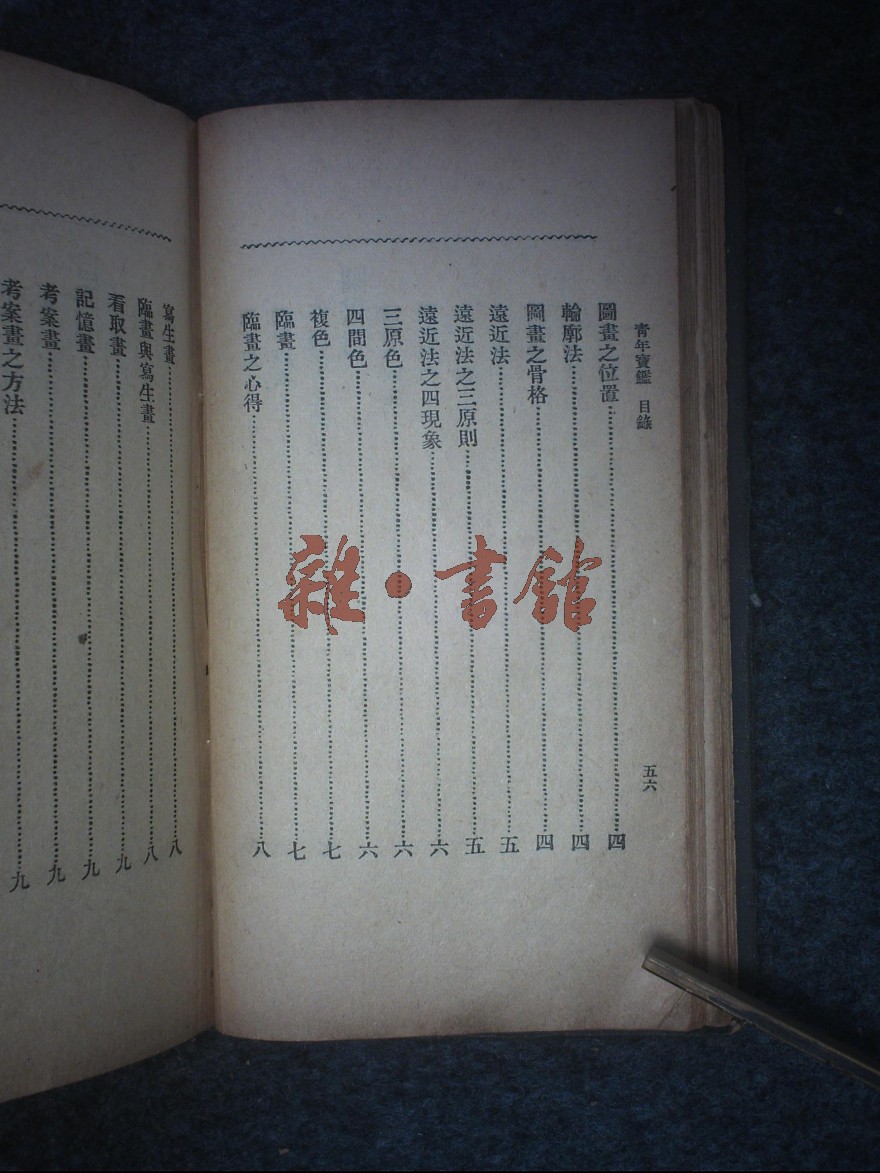 青年寶鑑 目錄 五六
圖畫之位置⋯⋯四
輪廓法⋯⋯四
圖畫之骨格⋯⋯四
遠近法⋯⋯五
遠近法之三原則⋯⋯五
遠近法之四現象⋯⋯六
三原色⋯⋯六
四間色⋯⋯六
複色⋯⋯七
臨畫⋯⋯七
臨畫之心得⋯⋯八
寫生畫⋯⋯八
臨畫與寫生畫⋯⋯八
看取畫⋯⋯九
記憶畫⋯⋯九
考案畫⋯⋯九
考案畫之方法⋯⋯九
雜·書館